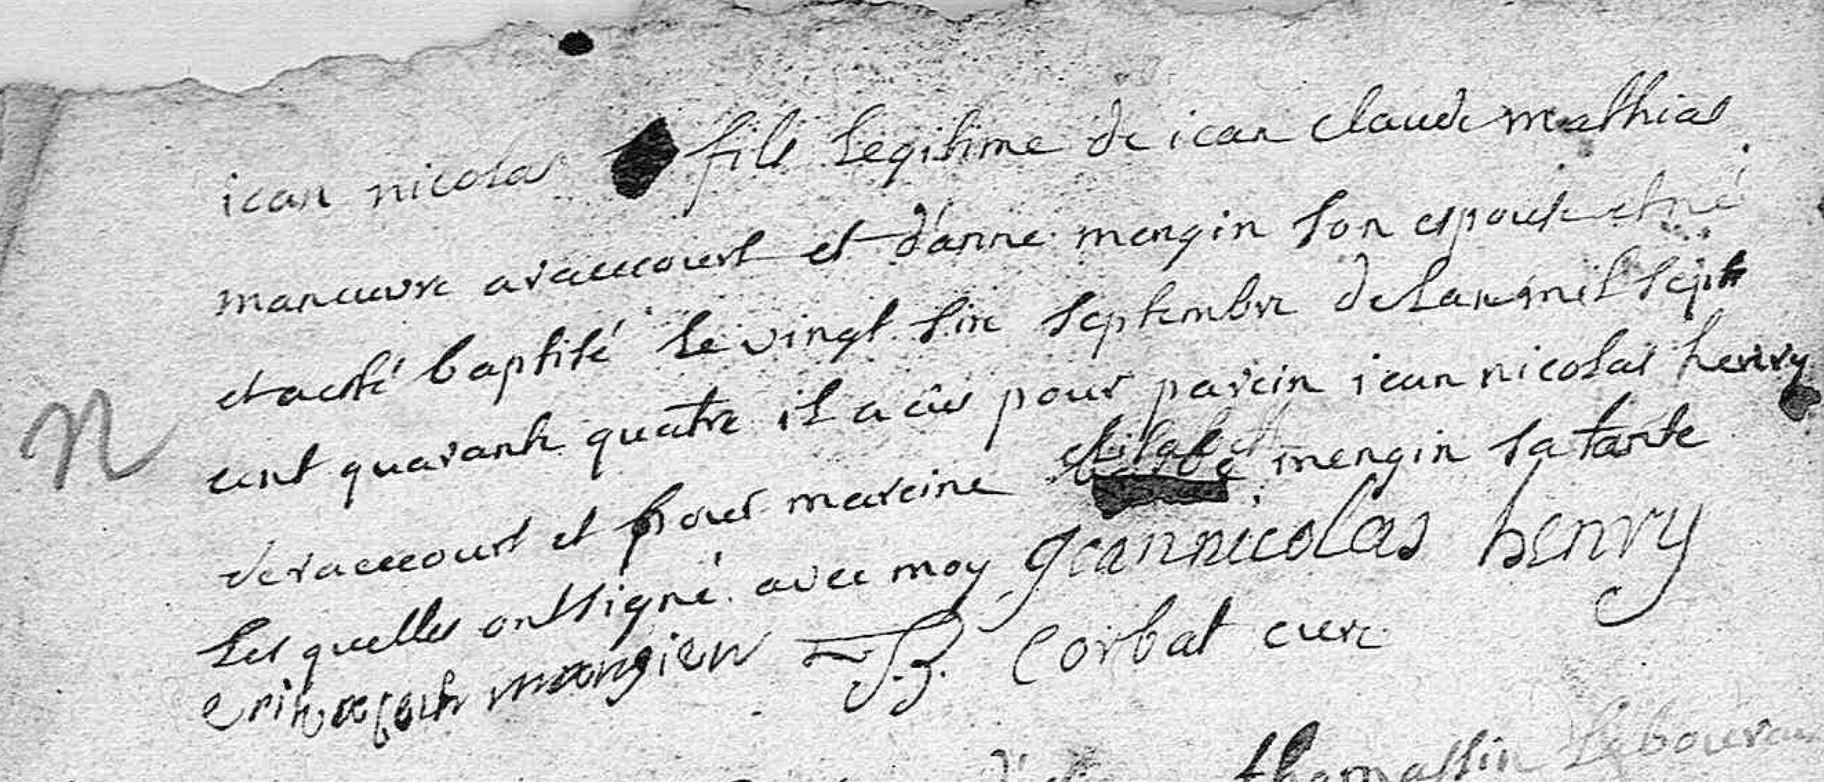 ican nicolas fils legitime de ican claude mathias
manœuvre araucourt et d'anne mengin son espouse et né
et a esté baptisé le vingt sixe septembre de lan mil sept
cent quarante quatre il a eüs pour parein ican nicolas henry
de raucourt et pour mareine elisabeth mengin sa tante
les quelles ont signé avec moy Jean nicolas henry
mangien Corbat curé
N
thomassin laboureur